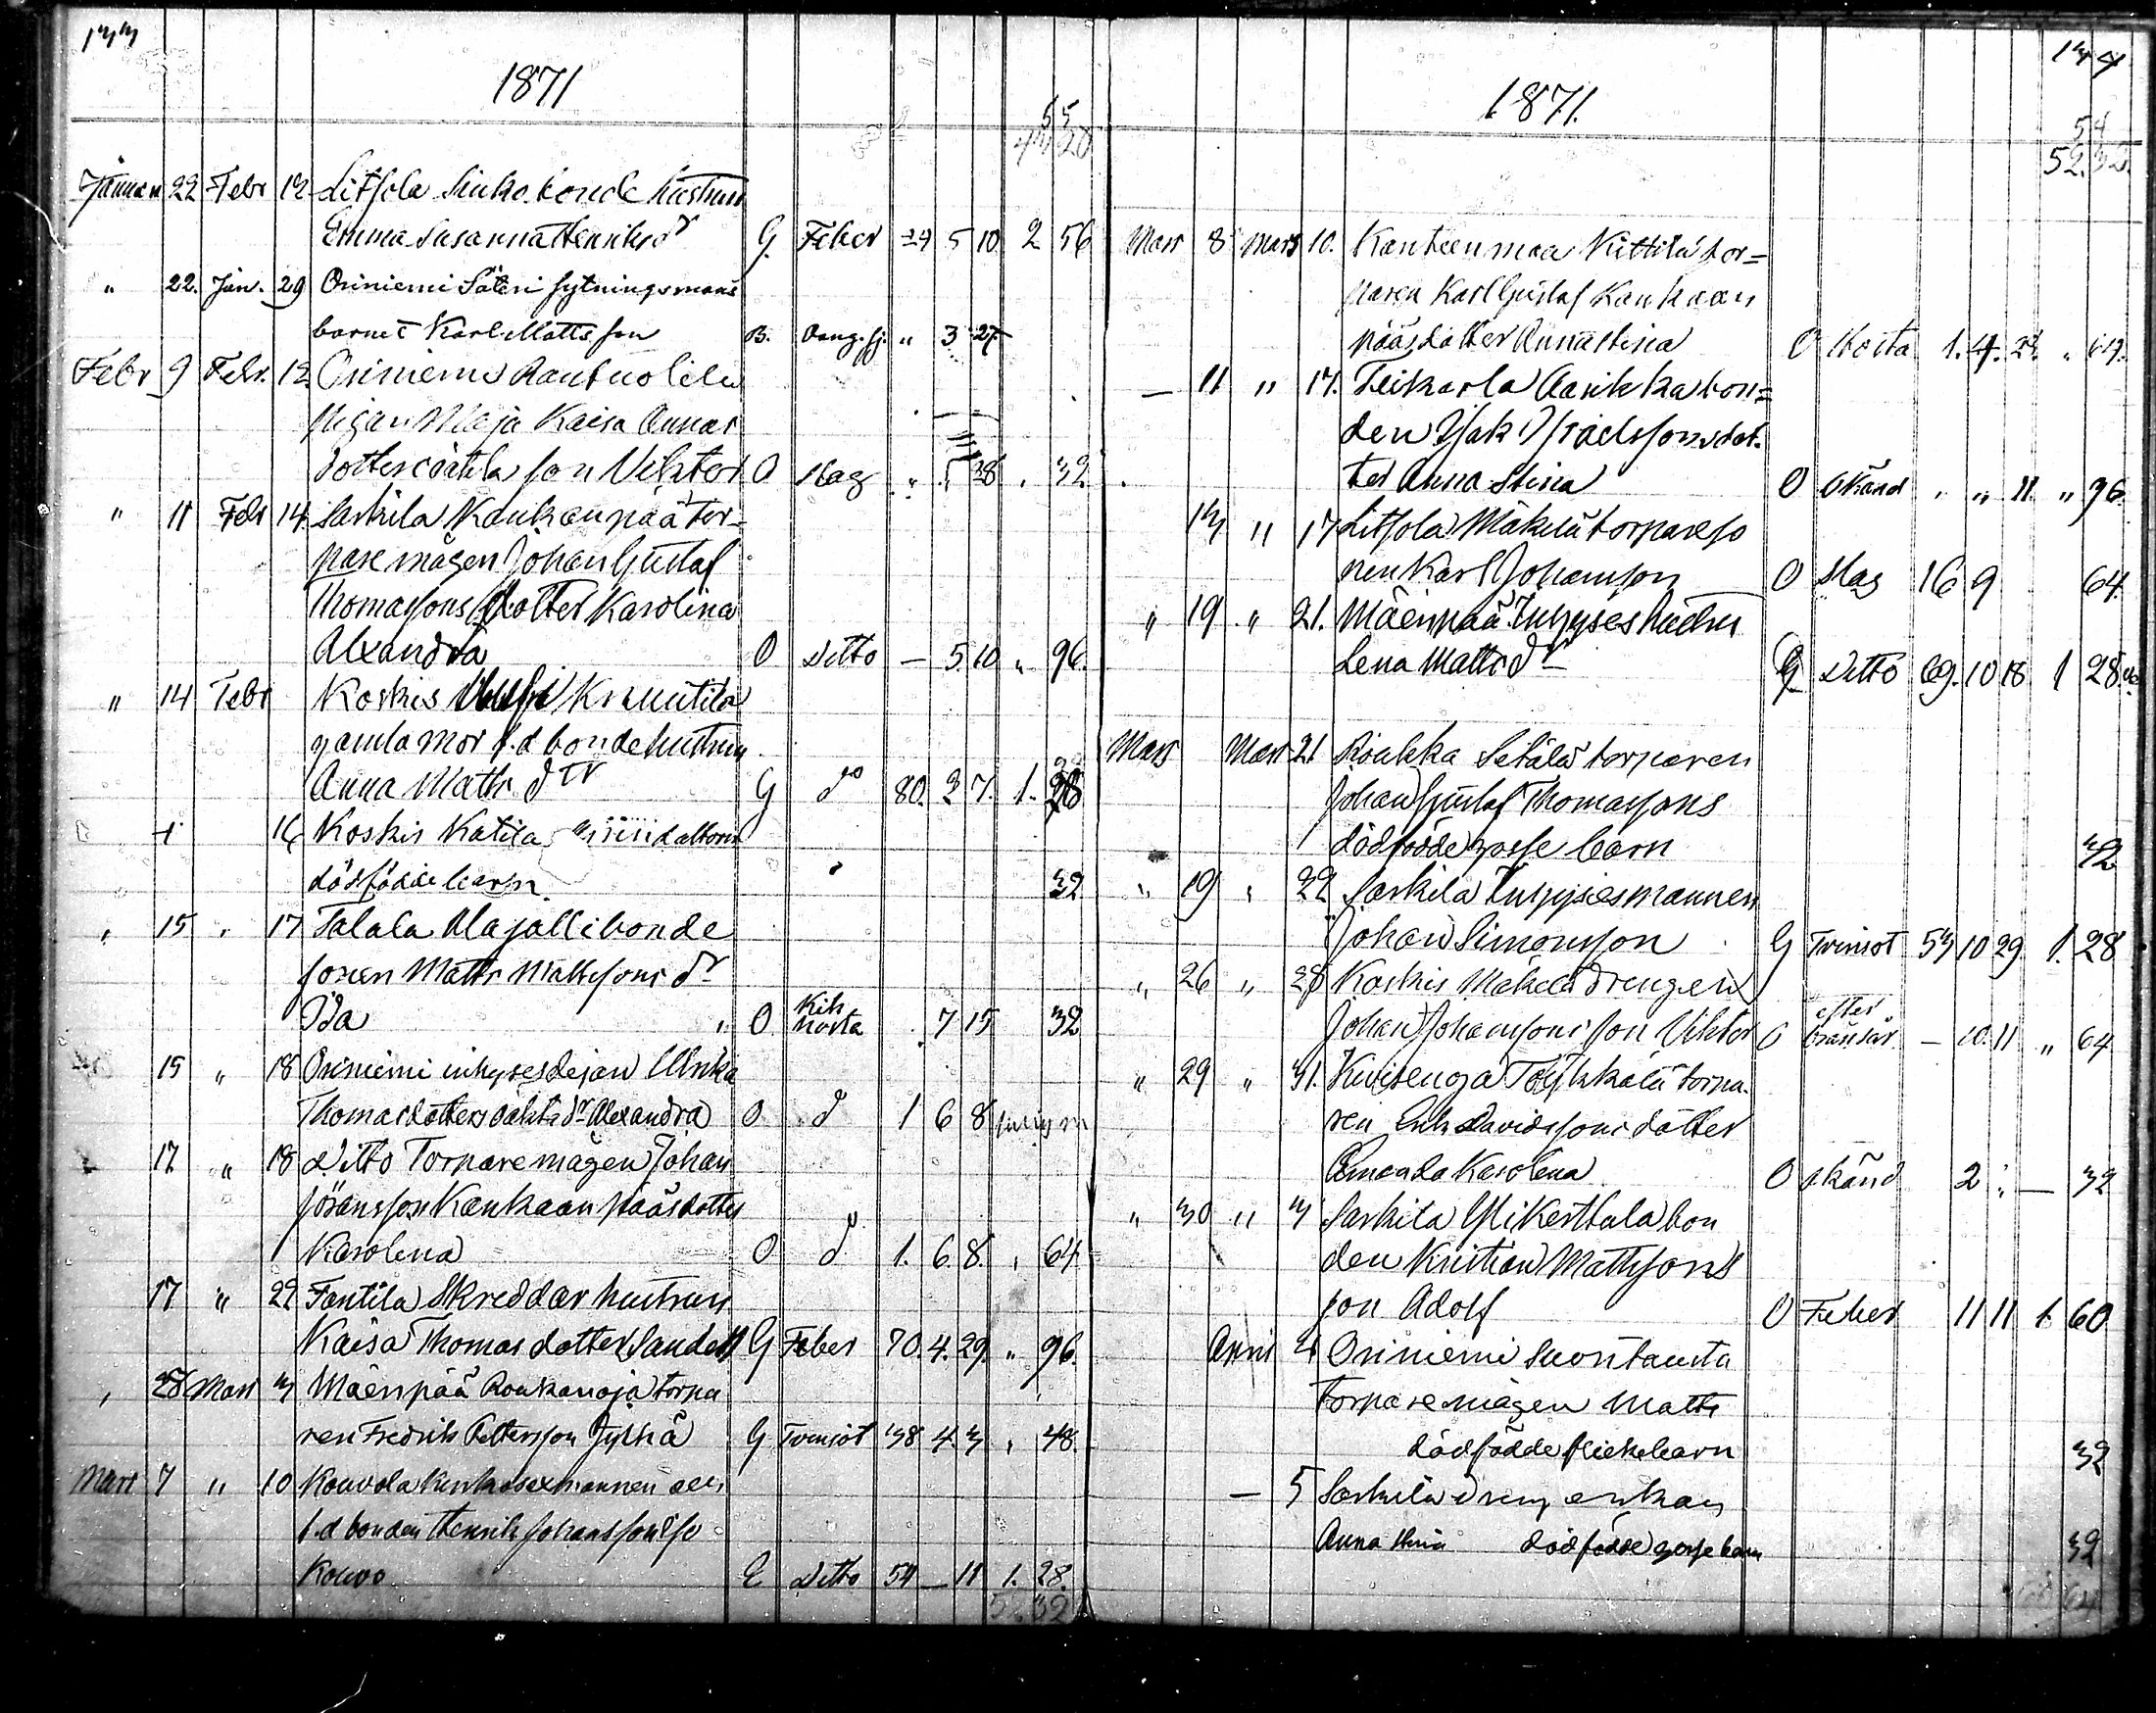 133
1871
65
Januari 22 Febr 12 Litsola Sinko bonde hustrun
Emma Susanna Henriksdr G. Feber 24 5 10 2 56
" 22. Jan. 29 Oriniemi Säteri sytningsmans
barnet Karl Mattsson B. Oang.sj. " 3 27
Febr 9 Febr. 12 Oriniemi
pigan Maja Kaisa Annas
dotters oäkta son Viktor O Slag " 5 28 . 32
" 11 Febr 14 Sarkila Kaukanpää tor-
pare mågen Johan Gustaf
Thomassons dotter Karolina
Alexandra O Ditto — 5 10 " 96.
" 14 Febr Koskis Krauutila
gamla mor f.d bondehustrun
Anna Matts dtr G do 80. 3 7. 1. 28
+ 16 Koskis Katila
dödfödde barn 32
" 15 " 17 Talala Alajalli bonde
sonen Matts Mattssons dr
Ida O. Kik hosta . 7 15 32
15 " 18 Oriniemi inhyses dejan Ulrika
Thomasdotters oäkta dr Alexandra O do 1 6 8
17 " 18 Ditto Torpare mågen Johan
Jöransson Kankaanpääs dotter
Karolena O do 1. 6 8. " 64
17 " 22 Fontila Skreddar hustrun
Kaisa Thomasdotter Sandell G Feber 70. 4. 29. " 96.
" 28 Mars 3 Mäenpää Roukanoja torpa
ren Fredrik Pettersson Jylhä G Tvinsot 38 4. 3 " 48
Mars 7 " 10 Kouvola Kirkosexmannen
f.d bonden Henrik Johansson Iso
Kouvo E Ditto 54 — 11 1. 28.
52 32
134
1871.
54
52.32.
Mars 8 Mars 10. Kanteenmaa Kittilä tor=
paren Karl Gustaf Kankaan
pääs dotter Anna Stina O Hosta 1. 4. 24 " 64.
— 11 " 17. Teikarla Aarikka bon=
den Isak Israelssons dot-
ter Anna Stina O Okänd " " 11. " 96.
13 " 17 Litsola Mäkilä torpareso
nen Karl Johansson O Slag 16 9 64
" 19 " 21. Mäenpää Inhyses
Lena Matts dr G Ditto 69. 10 18 1 28
Mars Mars 21 Roukka Setälä torparen
Johan Gustaf Thomassons
dödfödde gosse barn 32
" 19 " 22 Sarkila Inhysesmannen
Johan Simonsson G Tvinsot 53 10 29 1. 28
" 26 " 28 Koskis Mäkelä drengen
Johan Johanssons son Viktor O efter bränsår — 10. 11 " 64
" 29 " 31. Kivisenoja Töyhkälä torpa-
ren Erik Davidssons dotter
Amanda Karolena O okänd 2 " — 32
" 30 " 3 Sarkila Yli Kerttula bon
den Kristian Mattssons
son Adolf O Feber 11 11 1. 60
April 4 Oriniemi Suontausta
torparemågen Matts
dödfödde flickebarn 32
— 5 Sarkila dreng enkan
Anna Stina dödfödde gosse barn 32